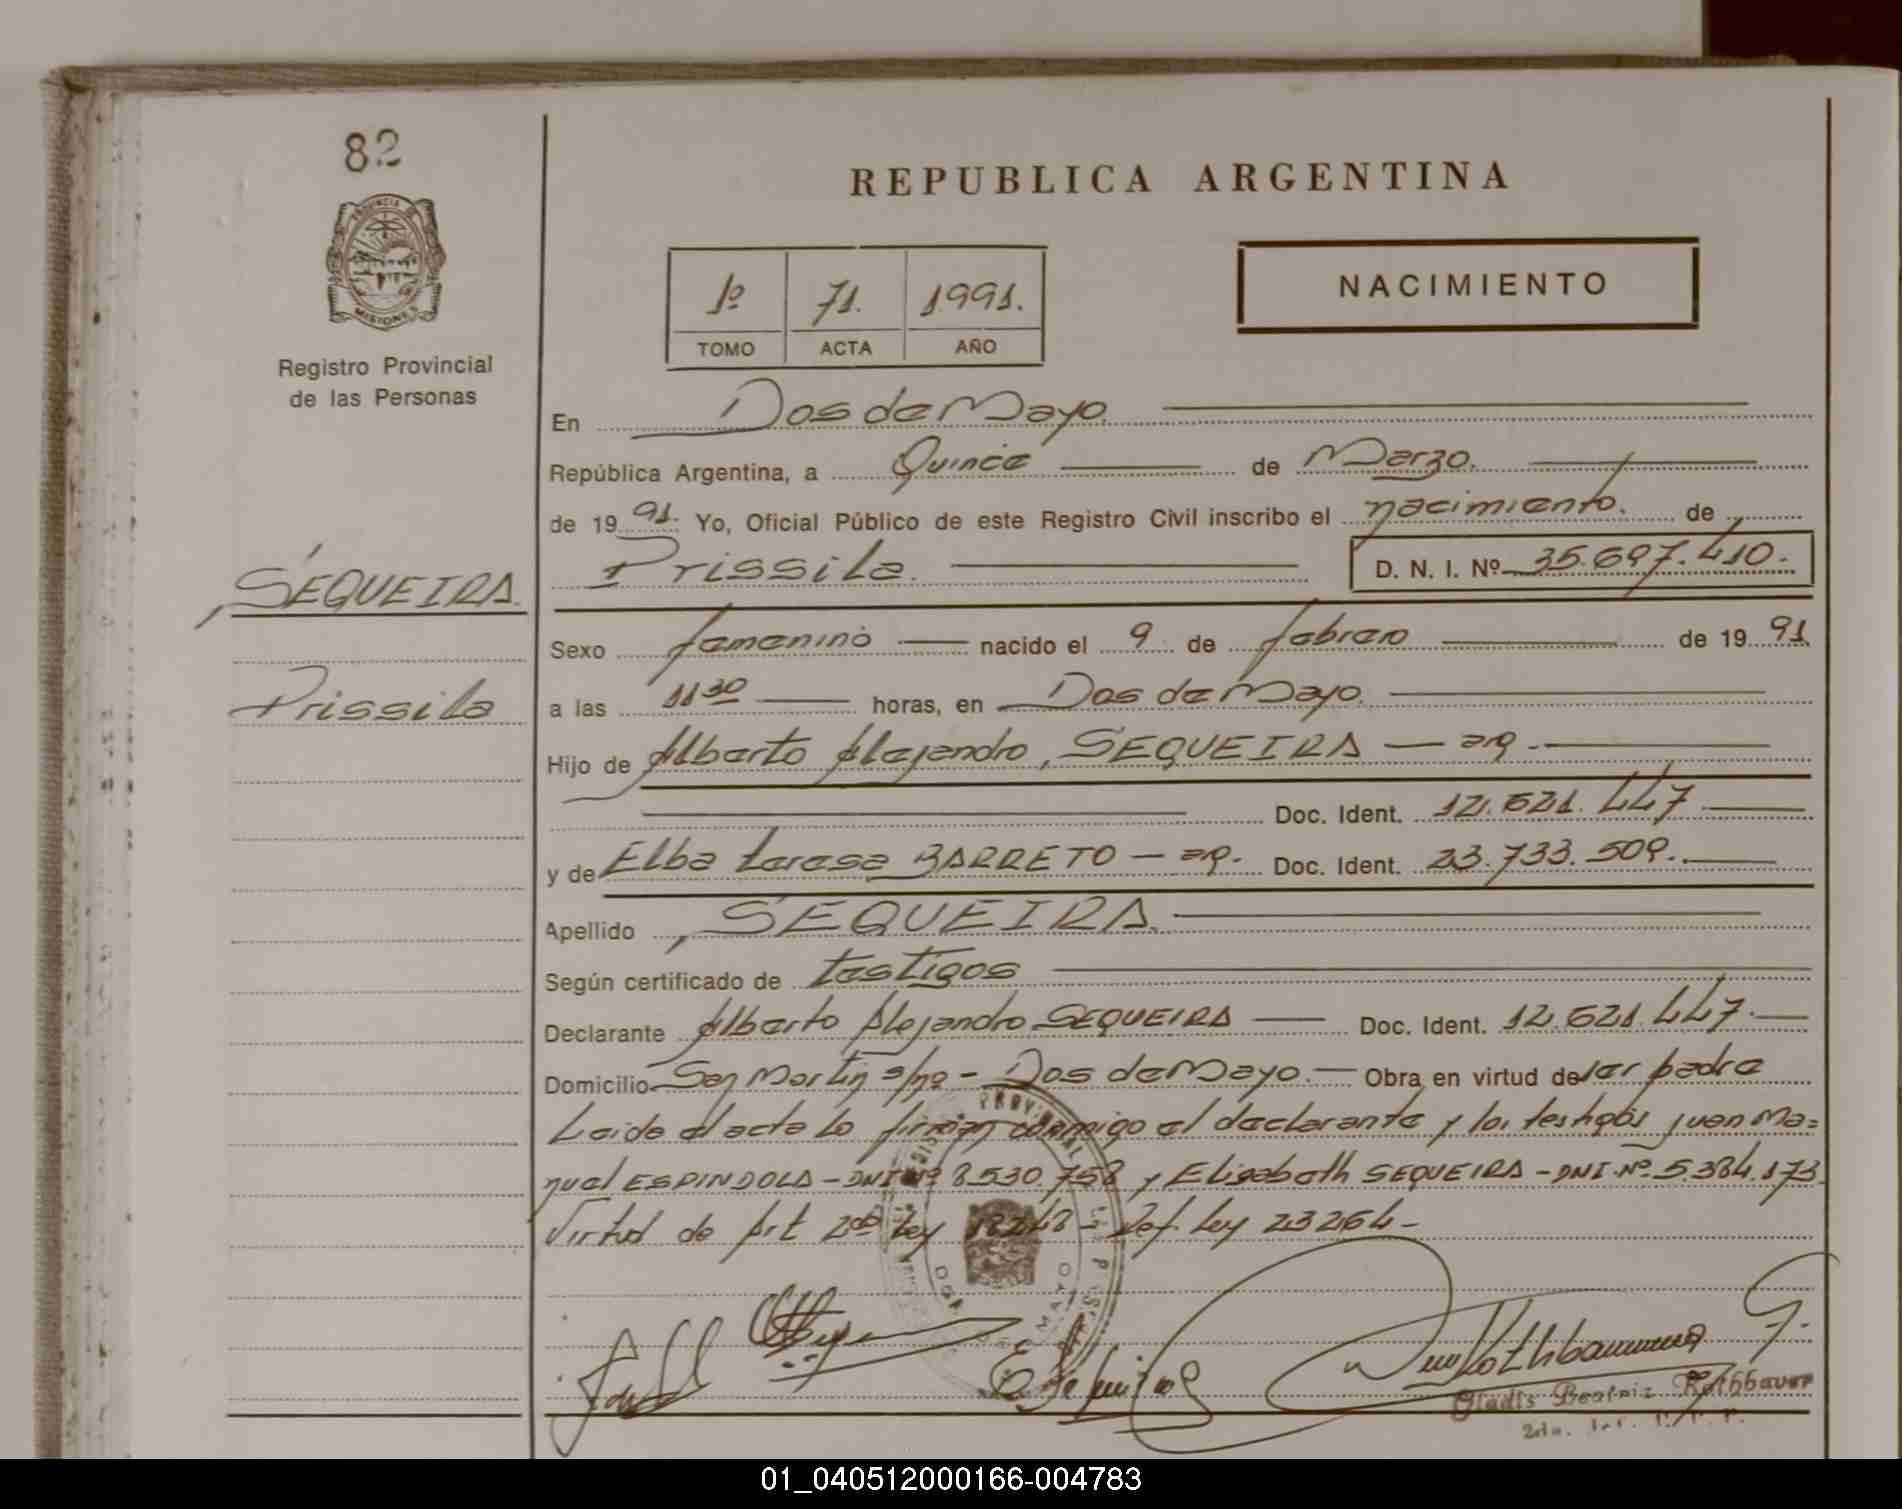 82
PROVINCIA DE
MISIONES
Registro Provincial
de las Personas
SEQUEIRA
Prissila
REPUBLICA ARGENTINA
1º 71. 1991.
TOMO ACTA AÑO
NACIMIENTO
En Dos de Mayo.
República Argentina, a Quince de Marzo.
de 19 91. Yo, Oficial Público de este Registro Civil inscribo el nacimiento. de
Prissila. D. N. I. Nº 35.697.410.
Sexo femenino nacido el 9 de febrero de 19 91
a las 11 30 horas, en Dos de Mayo.
Hijo de Alberto Alejandro, SEQUEIRA — arg.
Doc. Ident. 12.621.447
y de Elba Teresa BARRETO — arg. Doc. Ident. 23.733.509.
Apellido SEQUEIRA.
Según certificado de testigos
Declarante Alberto Alejandro SEQUEIRA — Doc. Ident. 12.621.447.
Domicilio San Martin s/nº - Dos de Mayo. — Obra en virtud de ser padre
Leida el acta lo firman conmigo el declarante y los testigos Juan Ma=
nuel ESPINDOLA - DNI Nº 8.530.758 y Elisabeth SEQUEIRA - DNI. Nº 5.384.173
Virtud de Art 2do Ley 18248 - Ref. Ley 23264 -
Gladis Beatriz Rothbauer
01_040512000166-004783